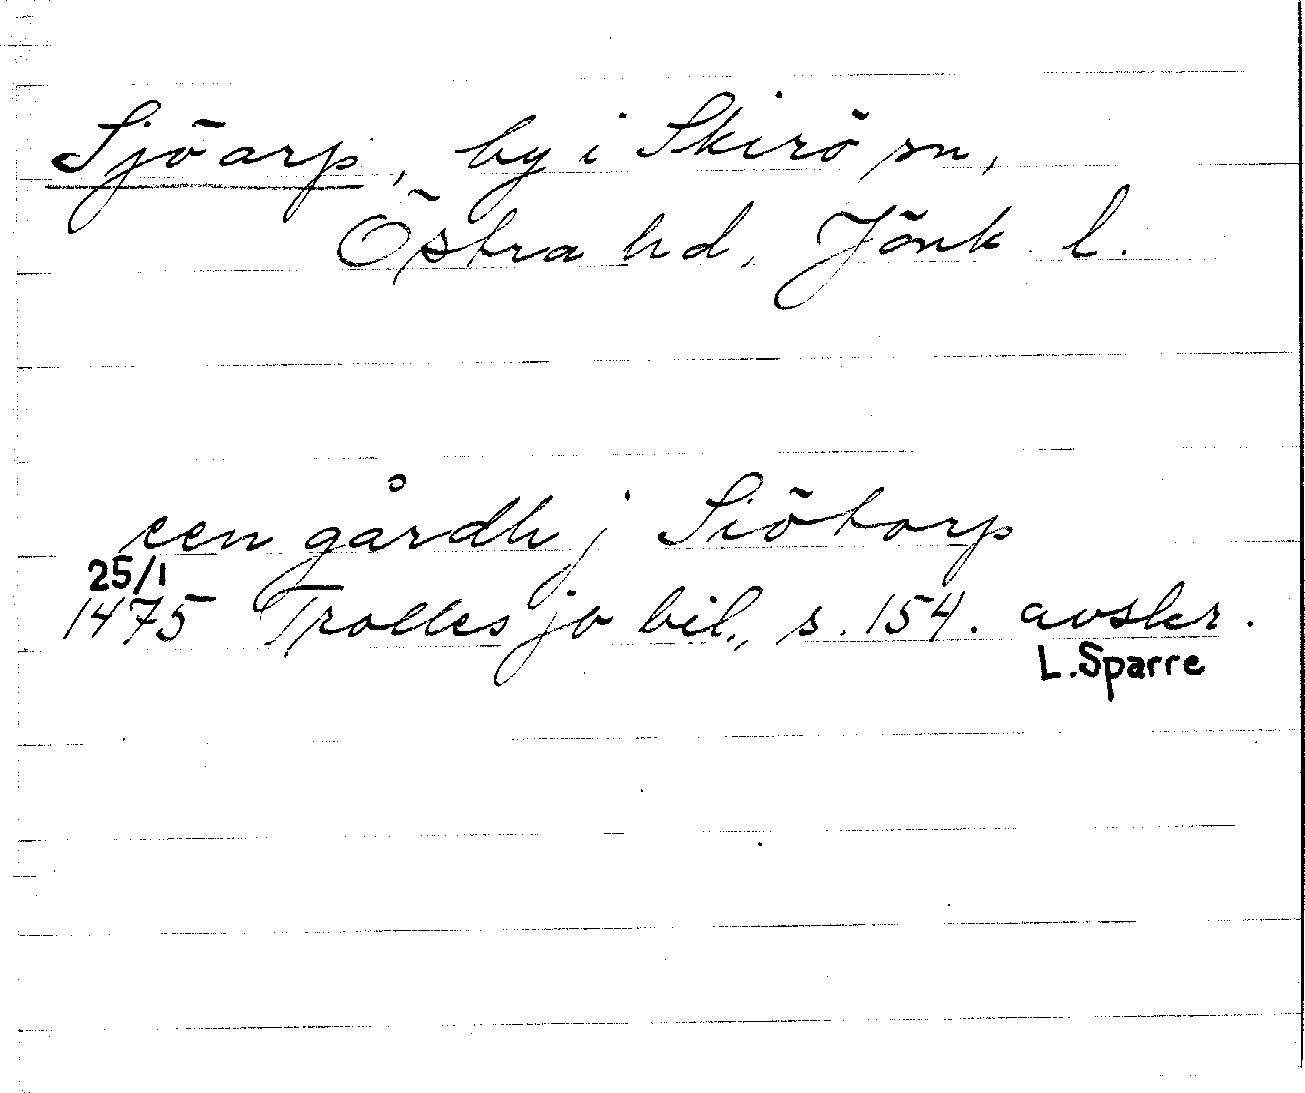 Sjöarp, by i Skirö sn,
Östra hd, Jönk. l.
een gårdh j Siötorp
25/1
1475 Trolles jb bil., s. 154. avskr.
L. Sparre